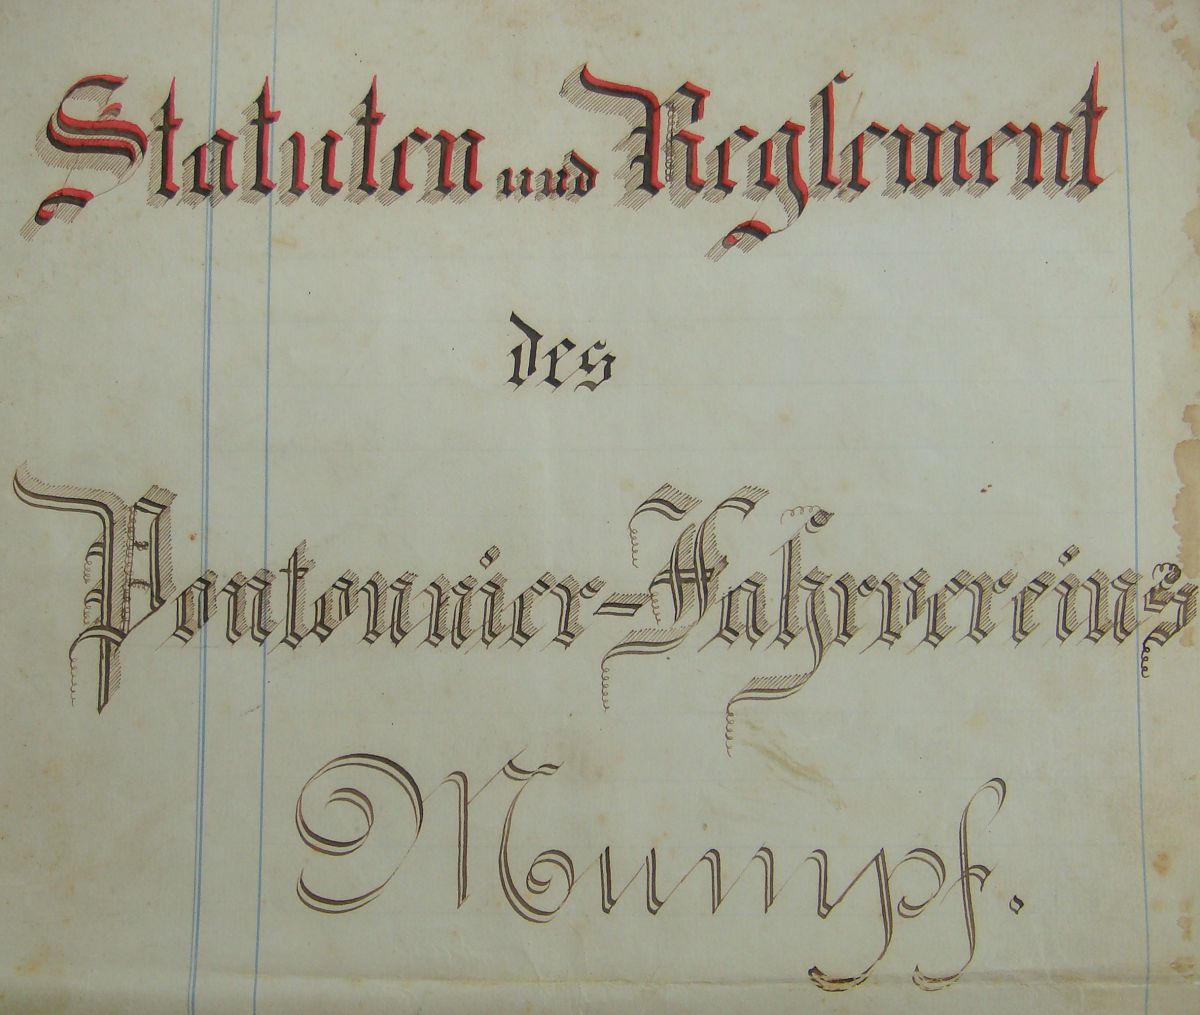 Statuten und Reglement
des
Pontonnier-Fahrvereins
Mumpf.